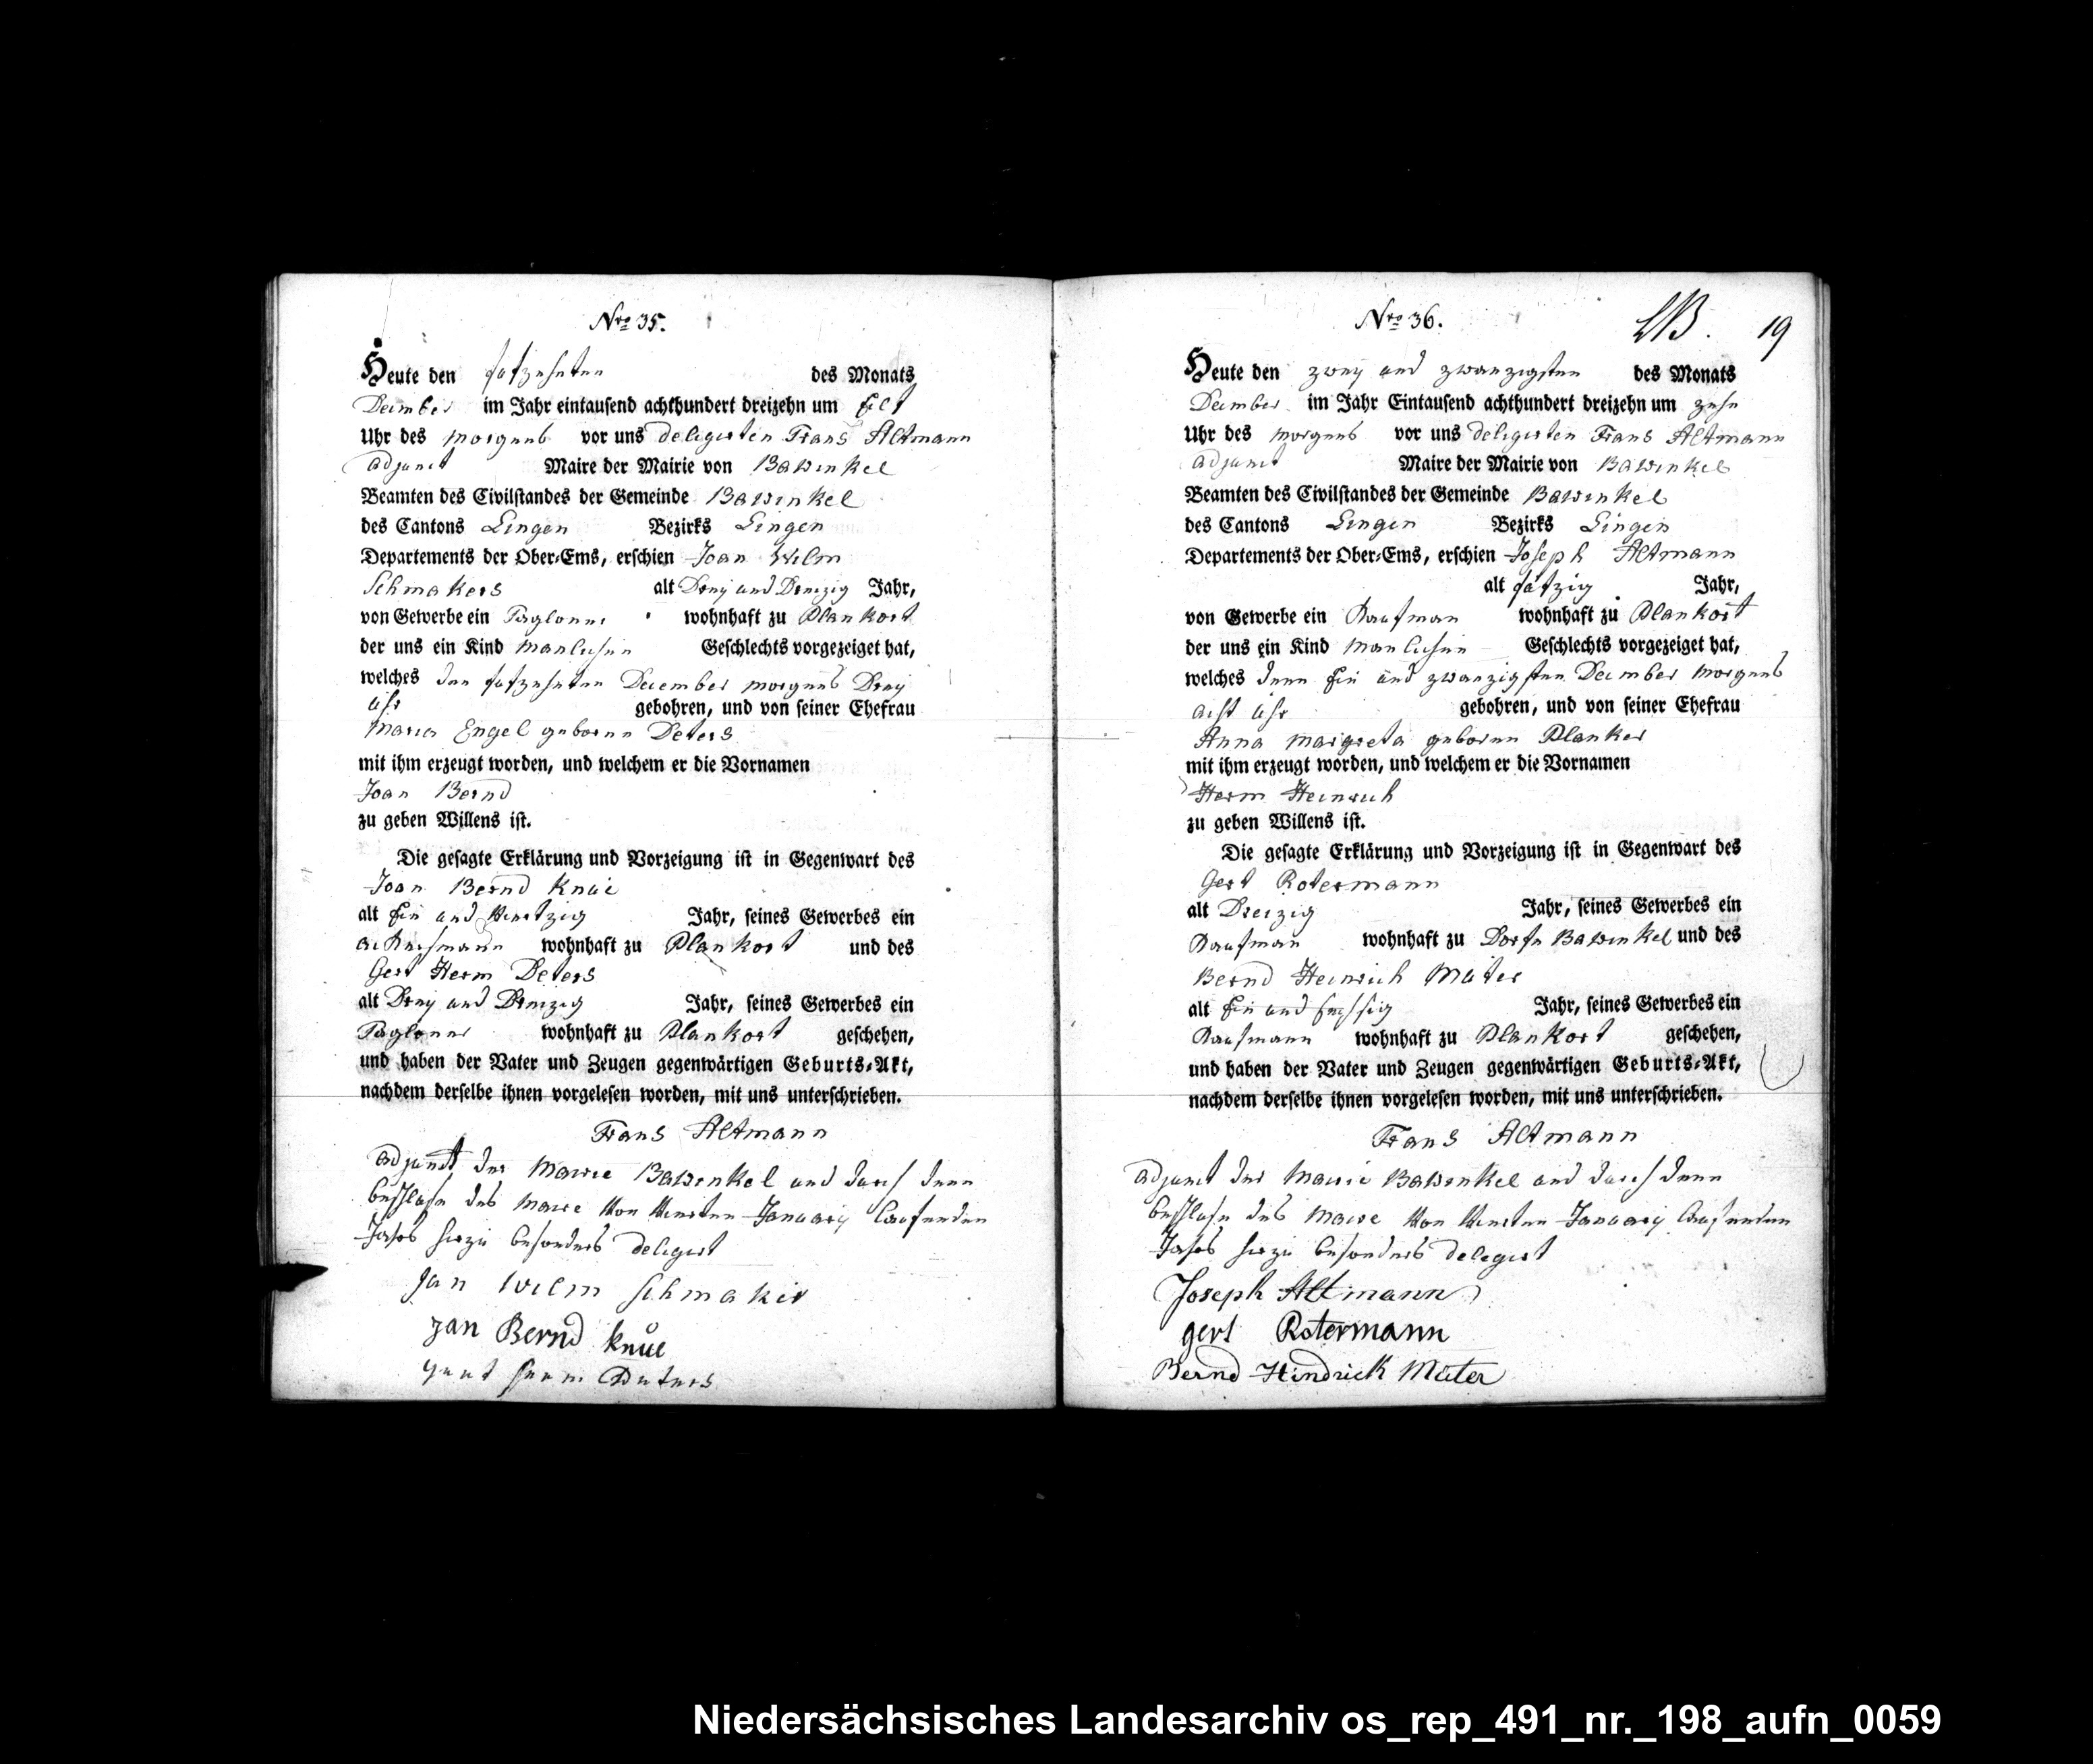 Nro 35.
Heute den fufzehnten des Monats
December im Jahr eintausend achthundert dreizehn um Eilf
Uhr des morgens vor uns delegirten Frans Altmann
adjunct Maire der Mairie von Bawinkel
Beamten des Civilstandes der Gemeinde Bawinkel
des Cantons Lingen Bezirks Lingen
Departements der Ober-Ems, erschien Joan Wilm
Schmakers alt Drey und Dreizig Jahr,
von Gewerbe ein Tagloner wohnhaft zu Plankort
der uns ein Kind manlichen Geschlechts vorgezeiget hat,
welches den fufzehnten December morgens Drey
uhr gebohren, und von seiner Ehefrau
Maria Engel geboren Deters
mit ihm erzeugt worden, und welchem er die Vornamen
Joan Bernd
zu geben Willens ist.
Die gesagte Erklärung und Vorzeigung ist in Gegenwart des
Joan Bernd Knüe
alt Ein und Viertzig Jahr, seines Gewerbes ein
wohnhaft zu Plankort und des
Gert Herm Deters
alt Drey und Dreizig Jahr, seines Gewerbes ein
Tagloner wohnhaft zu Plankort geschehen,
und haben der Vater und Zeugen gegenwärtigen Geburts-Akt,
nachdem derselbe ihnen vorgelesen worden, mit uns unterschrieben.
Frans Altmann
adjunct der Mairie Bawinkel und durch denn
beschluse des Maire Von Vierten January laufenden
Jahrs hirzu besonders delegirt
Jan Wilm Schmaker
Jan Bernd Knüe
Gert Herm Deters
Nro 36.
19
Heute den zwey und zwanzigsten des Monats
December im Jahr Eintausend achthundert dreizehn um zehn
Uhr des morgens vor uns delegirten Frans Altmann
adjunct Maire der Mairie von Bawinkel
Beamten des Civilstandes der Gemeinde Bawinkel
des Cantons Lingen Bezirks Lingen
Departements der Ober-Ems, erschien Joseph Altmann
alt fufzig Jahr,
von Gewerbe ein Kaufman wohnhaft zu Plankort
der uns ein Kind manlichen Geschlechts vorgezeiget hat,
welches denn Ein und zwanzigsten December morgens
acht uhr gebohren, und von seiner Ehefrau
Anna Margreta geboren Planker
mit ihm erzeugt worden, und welchem er die Vornamen
Herm Heinrich
zu geben Willens ist.
Die gesagte Erklärung und Vorzeigung ist in Gegenwart des
Gert Rotermann
alt Dreizig Jahr, seines Gewerbes ein
Kaufman wohnhaft zu Dorfe Bawinkel und des
Bernd Heinrich Müter
alt Ein und sechsig Jahr, seines Gewerbes ein
Kaufmann wohnhaft zu Plankort geschehen,
und haben der Vater und Zeugen gegenwärtigen Geburts-Akt,
nachdem derselbe ihnen vorgelesen worden, mit uns unterschrieben.
Frans Altmann
adjunct der Mairie Bawinkel und durch denn
beschluse des Maire Von Vierten January laufenden
Jahrs hirzu besonders delegirt
Joseph Altmann
gert Rotermann
Bernd Hindrick Müter
Niedersächsisches Landesarchiv os_rep_491_nr._198_aufn_0059